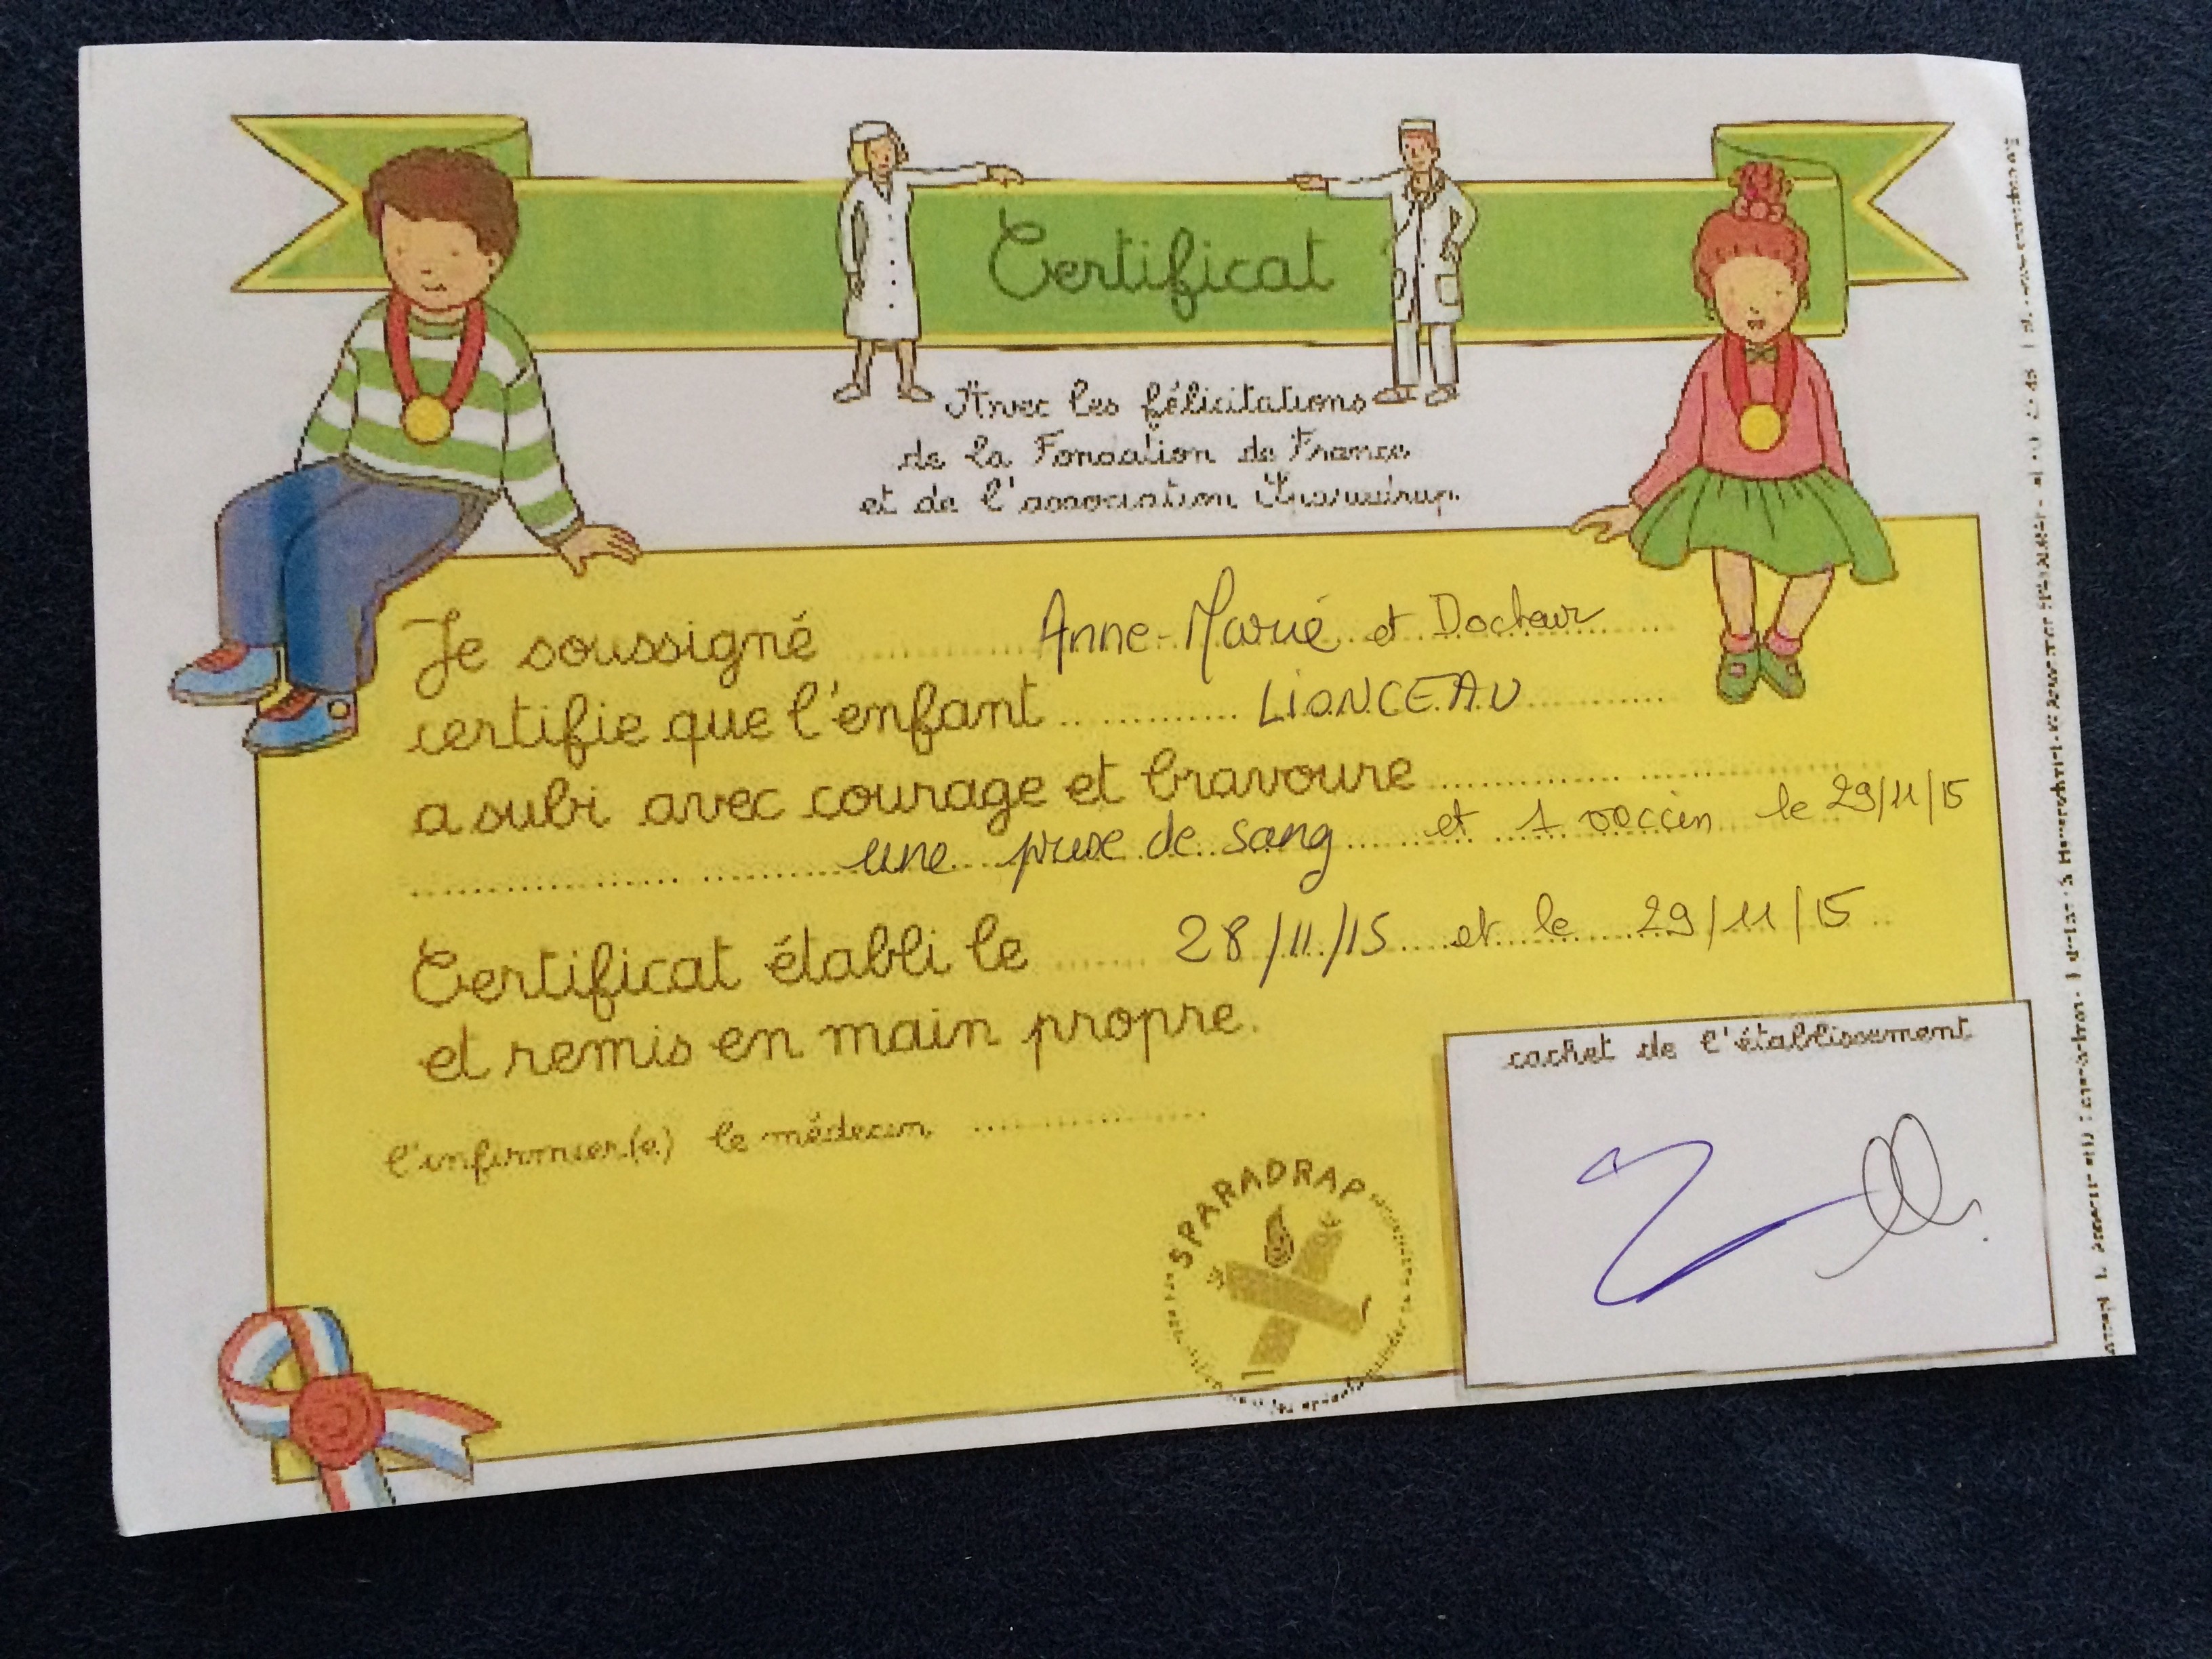 Certificat
Avec les félicitations
de la Fondation de France
et de l'association Sparadrap.
Je soussigné Anne-Marie et Docteur
certifie que l'enfant LIONCEAU
a subi avec courage et bravoure
une prise de sang et 1 vaccin le 29/11/15
Certificat établi le 28/11/15 et le 29/11/15
et remis en main propre.
l'infirmier(e) le médecin
cachet de l'établissement
SPARADRAP